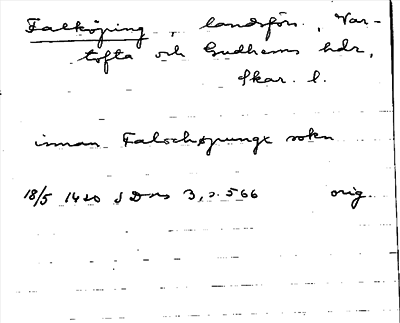 Falköping, landsförs., Var-
tofta och Gudhems hdr,
Skar. l.
innan Falochøpungx sokn
18/5 1420 SD ns 3, s. 566 orig.